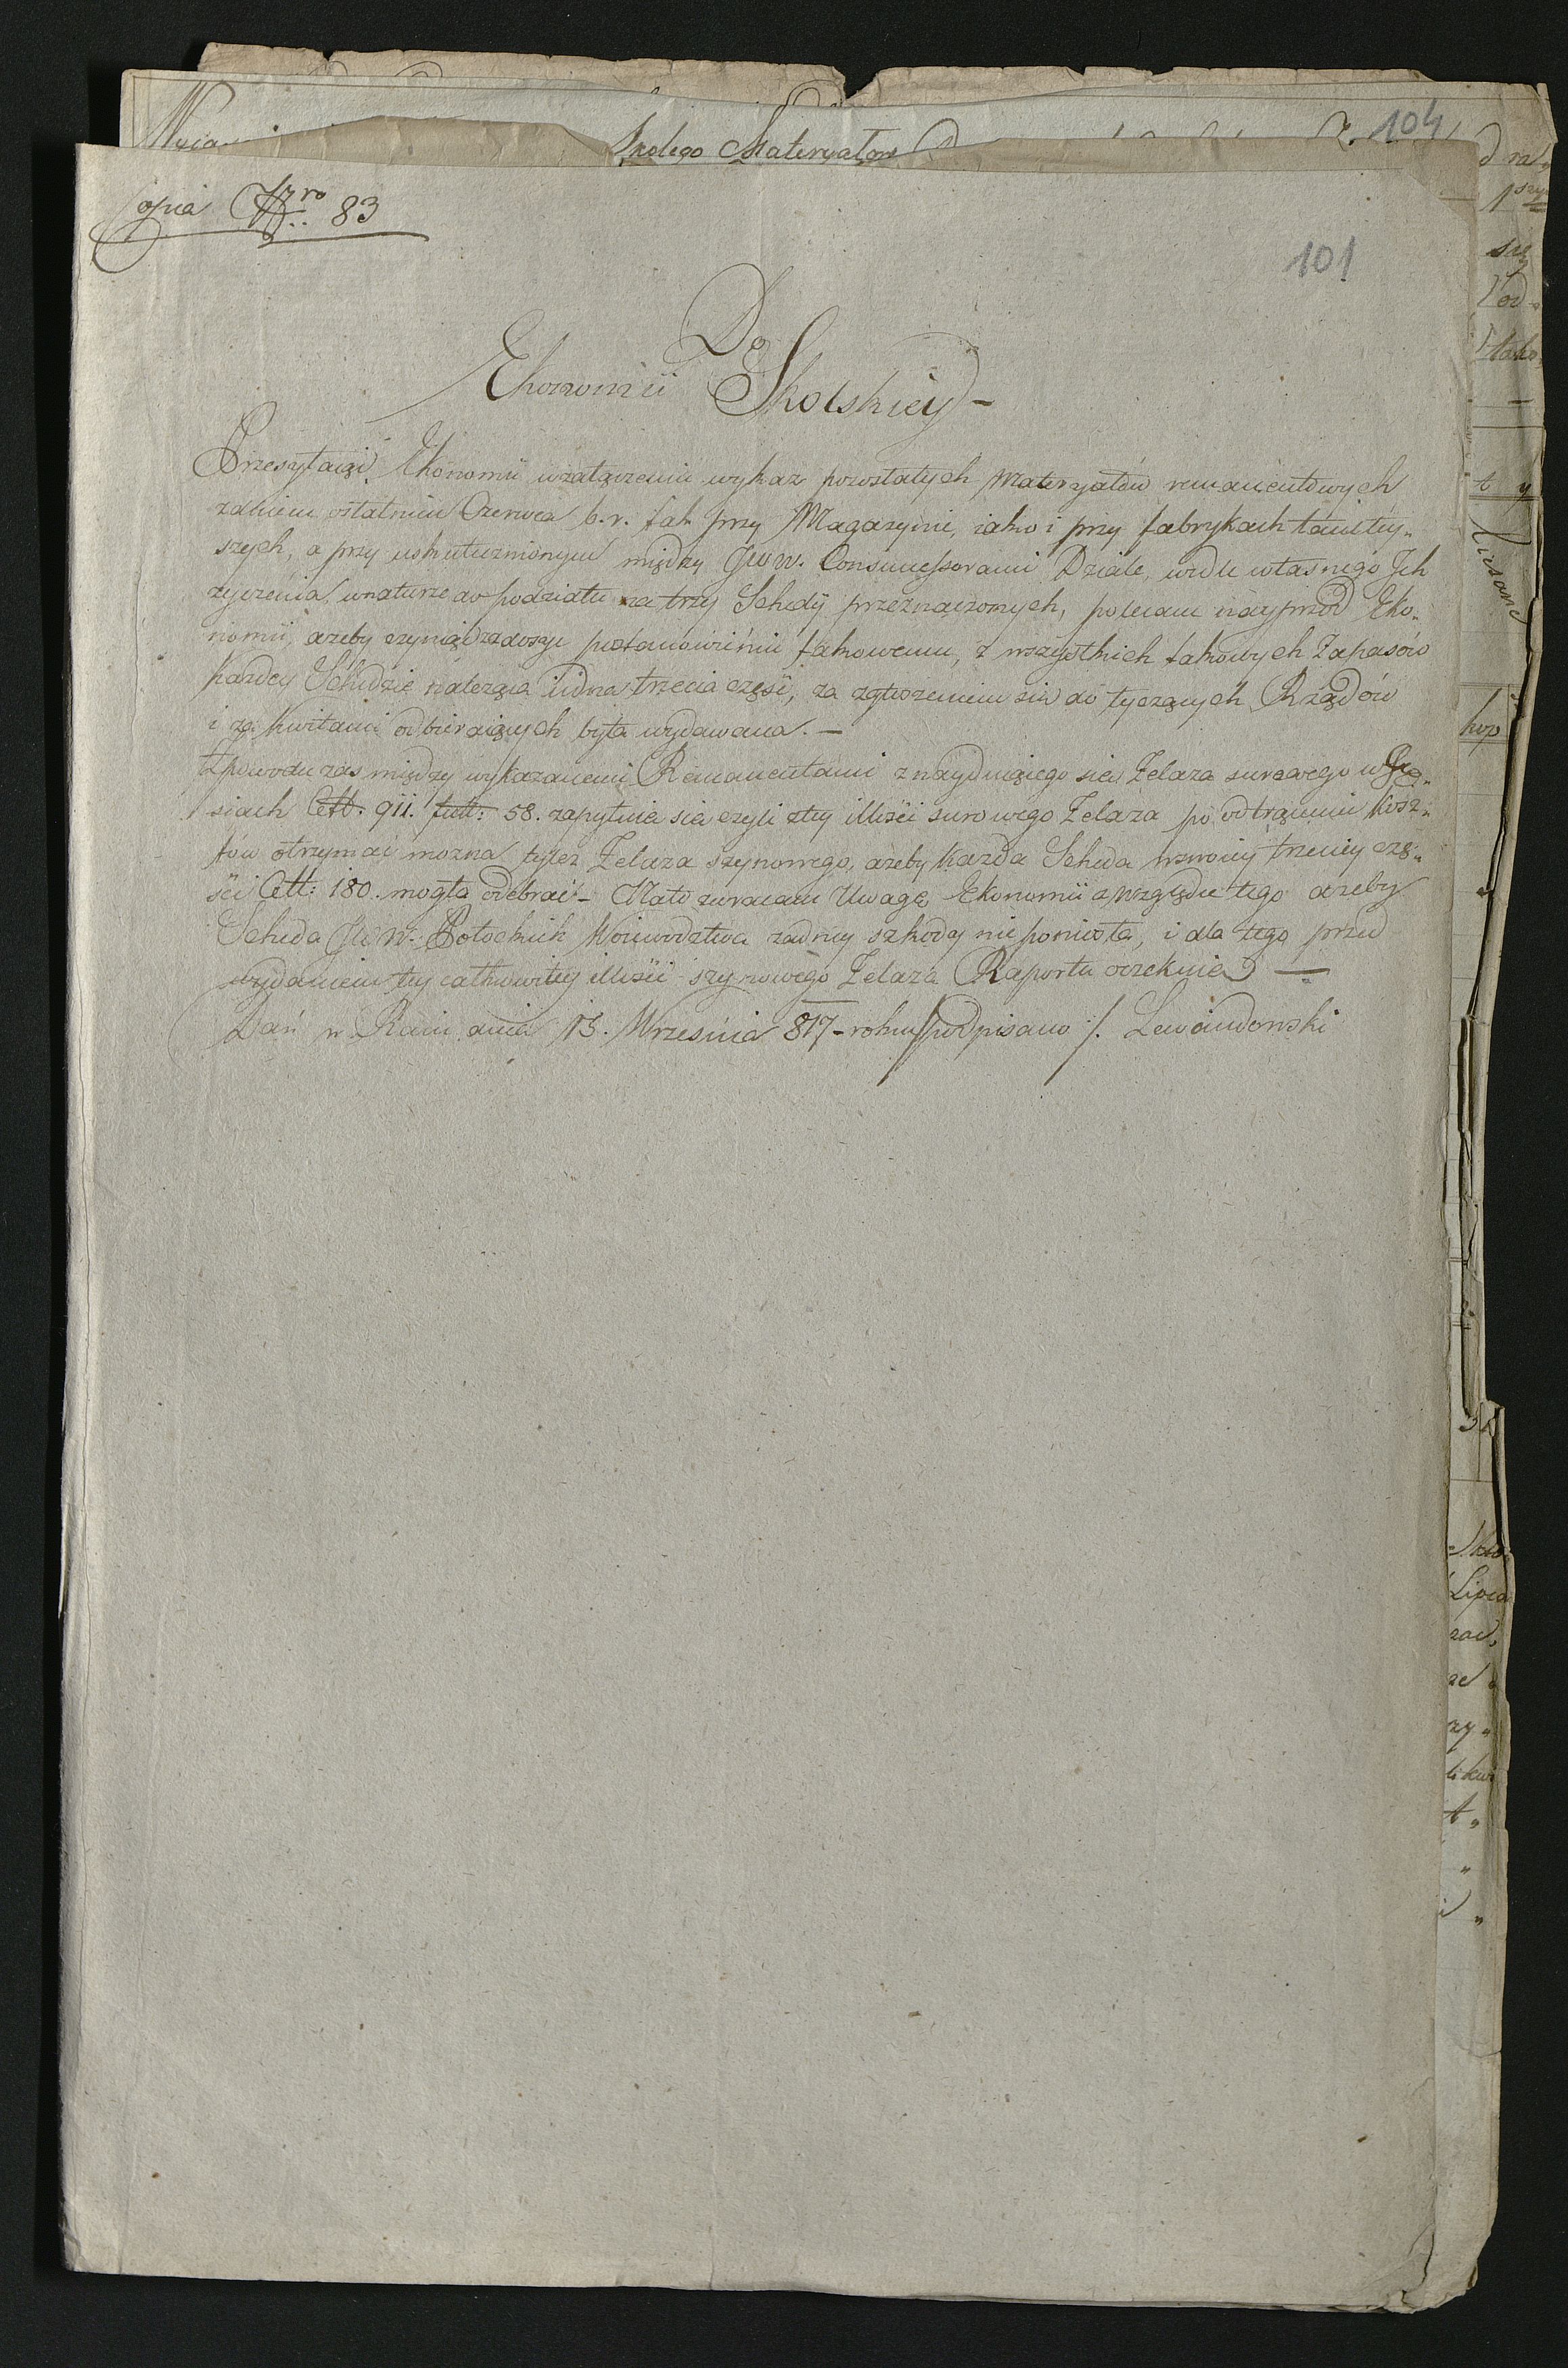 104
Skolego Materyałow
Copia Nro 83
101
Do
Ekonomii Skolskiey –
Przesyłaiąc Ekonomii wzałączeniu wykaz pozostałych Materyałów remanentowych
zdniem ostatnim Czerwca b. r. tak przy Magazynie, iako i przy fabrykach tamtey„
szych, a przy uskutecznionym między JWW. Consuccessorami Dziale, wedle własnego Ich
życzenia, wnaturze do podziału na trzy Schedy przeznaczonych, polecam nayprzód Eko„
nomii, ażeby czyniąc zadosyć postanowieniu takowemu, z wszystkich takowych Zapasów
każdey Schedzie należąca iedna trzecia część, za zgłoszeniem się do tyczących Rządów
i za kwitami odbieraiących była wydawana. –
Zpowodu zaś między wykazanemi Remanentami znayduiącego się Żelaza surowego w Gę„
siach Cett. 911. futt: 58. zapytuie się czyli ztey illości surowego Żelaza po odtrąceniu kosz„
tów otrzymać można tyleż Żelaza szynowego, ażeby każda Scheda wswoiey trzeciey czę„
ści Cett: 180. mogła odebrać – Nato zwracam Uwagę Ekonomii z względu tego ażeby
Scheda JWW. Potockich Woiewodztwa żadney szkody nieponiosła, i dla tego przed
wydaniem tey całkowitey illości szynowego Żelaza Raportu oczekuię –
Dań w Raiu dnia 13. Września 817 – roku /podpisano/. Lewandowski